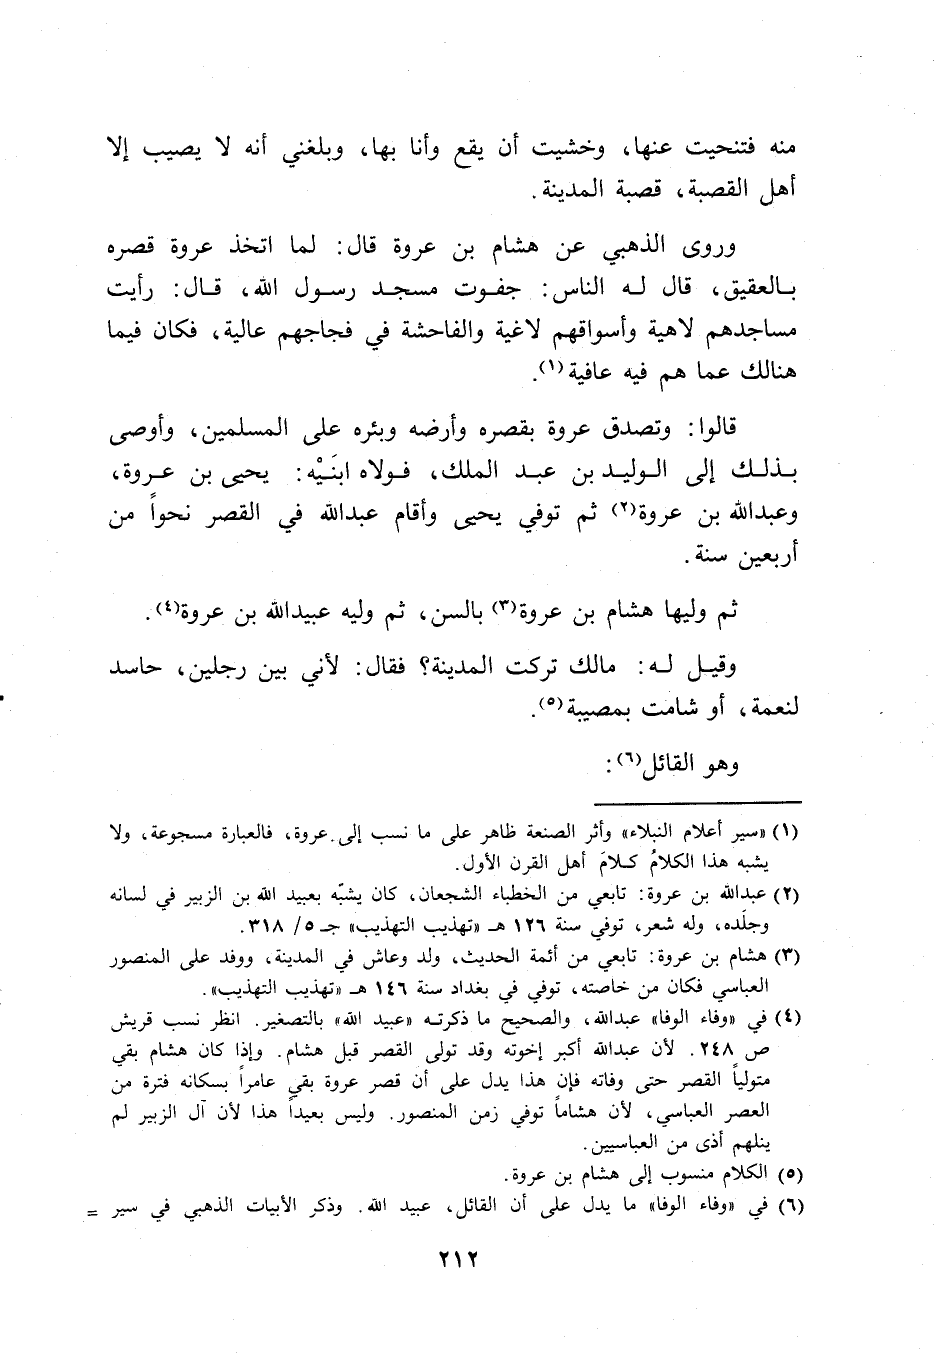 منه فتنحيت عنها، وخشيت أن يقع وأنا بها، وبلغني أنه لا يصيب إلا
أهل القصبة، قصبة المدينة.
وروى الذهبي عن هشام بن عروة قال: لما اتخذ عروة قصره
بالعقيق، قال له الناس: جفوت مسجد رسول الله، قال: رأيت
مساجدهم لاهية وأسواقهم لاغية والفاحشة في فجاجهم عالية، فكان فيما
هنالك عما هم فيه عافية(١).
قالوا: وتصدق عروة بقصره وأرضه وبئره على المسلمين، وأوصى
بذلك إلى الوليد بن عبد الملك، فولاه ابنَيْه: يحيى بن عروة،
وعبدالله بن عروة(٢) ثم توفي يحيى وأقام عبدالله في القصر نحواً من
أربعين سنة.
ثم وليها هشام بن عروة(٣) بالسن، ثم وليه عبيدالله بن عروة(٤).
وقيل له: مالك تركت المدينة؟ فقال: لأني بين رجلين، حاسد
لنعمة، أو شامت بمصيبة(٥).
وهو القائل(٦):
(١) «سير أعلام النبلاء» وأثر الصنعة ظاهر على ما نسب إلى عروة، فالعبارة مسجوعة، ولا
يشبه هذا الكلامُ كلامَ أهل القرن الأول.
(٢) عبدالله بن عروة: تابعي من الخطباء الشجعان، كان يشبّه بعبيد الله بن الزبير في لسانه
وجلَده، وله شعر، توفي سنة ١٢٦ هـ «تهذيب التهذيب» جـ ٥/ ٣١٨.
(٣) هشام بن عروة: تابعي من أئمة الحديث، ولد وعاش في المدينة، ووفد على المنصور
العباسي فكان من خاصته، توفي في بغداد سنة ١٤٦ هـ «تهذيب التهذيب».
(٤) في «وفاء الوفا» عبدالله، والصحيح ما ذكرته «عبيد الله» بالتصغير. انظر نسب قريش
ص ٢٤٨. لأن عبدالله أكبر إخوته وقد تولى القصر قبل هشام. وإذا كان هشام بقي
متولياً القصر حتى وفاته فإن هذا يدل على أن قصر عروة بقي عامراً بسكانه فترة من
العصر العباسي، لأن هشاماً توفي زمن المنصور. وليس بعيداً هذا لأن آل الزبير لم
ينلهم أذى من العباسيين.
(٥) الكلام منسوب إلى هشام بن عروة.
(٦) في «وفاء الوفا» ما يدل على أن القائل، عبيد الله. وذكر الأبيات الذهبي في سير =
٢١٢